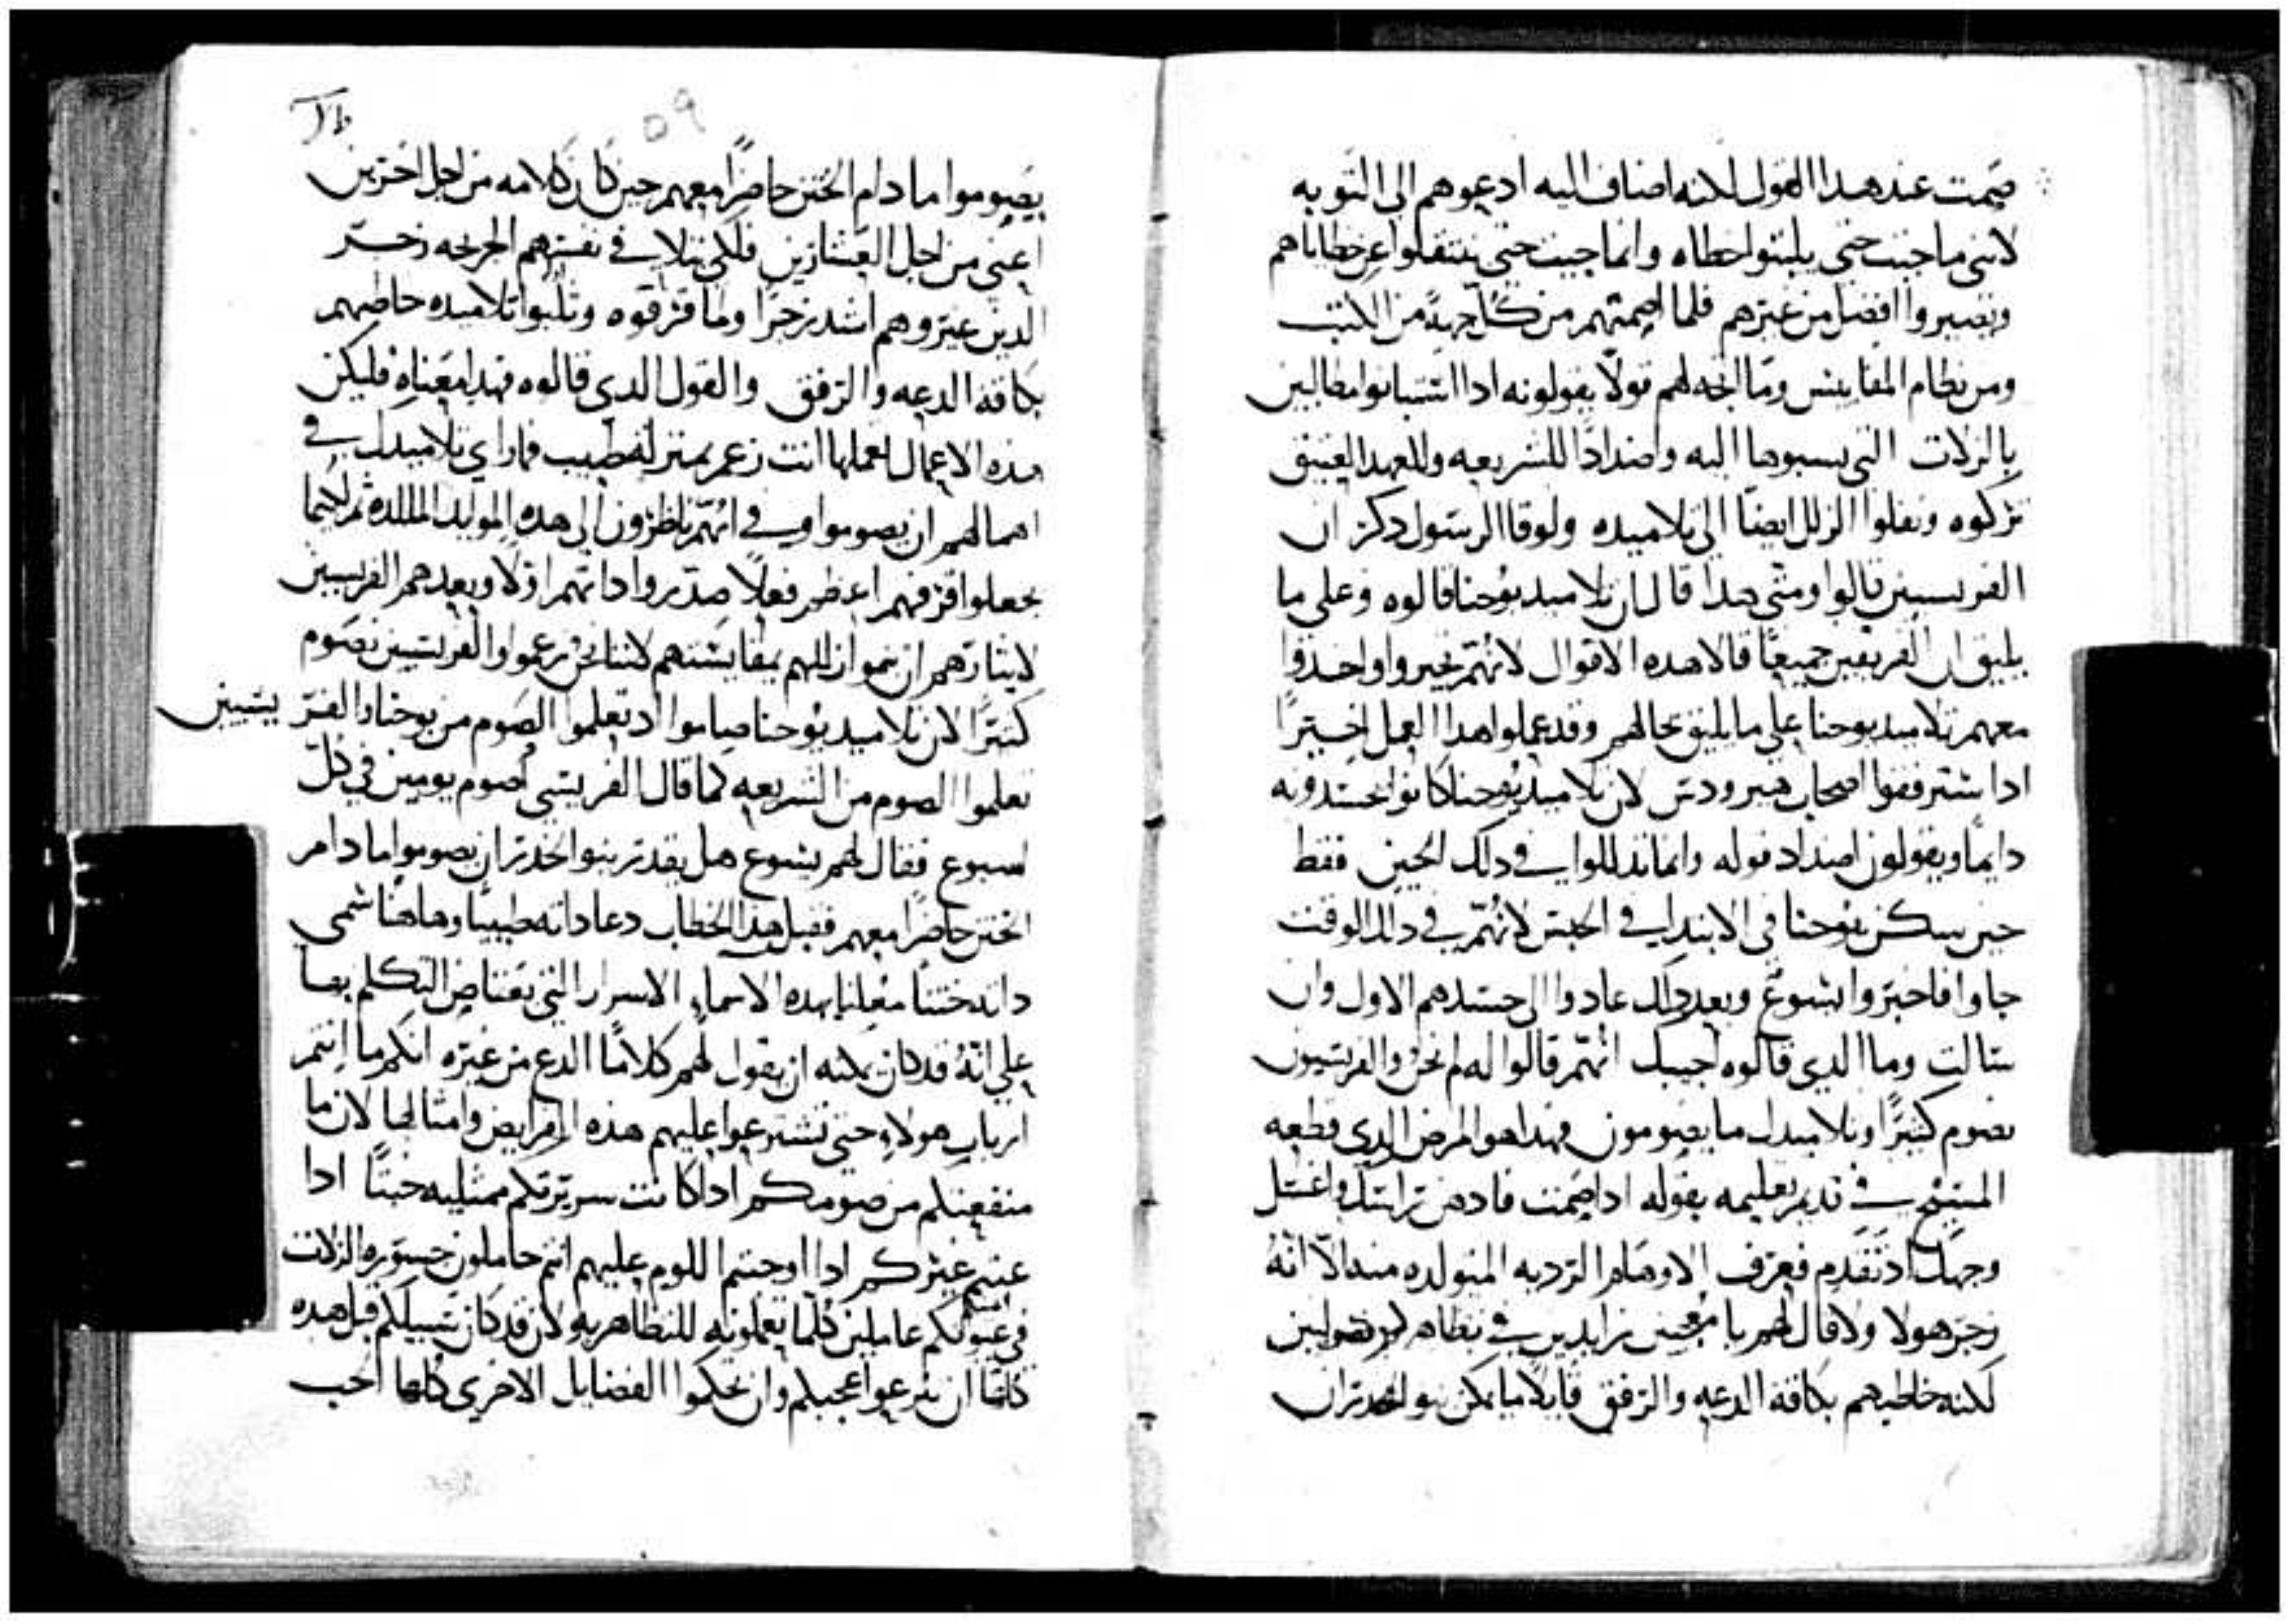 صمت عند هدا القول لكنه اضاف اليه ادعوهم الى التوبه
لانني ما جيت حتى يلبثوا خطاه وانما جيت حتى ينتقلوا عن خطاياهم
ويصيروا افضل من غيرهم فلما اصمتهم من كل جهةً من الكتب
ومن نظام المقاييس وما اتجه لهم قولًا يقولونه ادا استبانوا مطالبين
بالزلات التي نسبوها اليه واضدادًا للشريعه وللعهد العتيق
تركوه ونقلوا الزلل ايضًا الى تلاميده ولوقا الرسول دكر ان
الفريسيين قالوا ومتى هدا قال ان تلاميد يوحنا قالوه وعلى ما
يليق ان الفريقين جميعًا قالا هده الاقوال لانهم تخيروا واخدوا
معهم تلاميد يوحنا على ما يليق بحالهم وقد عملوا هدا العمل اخيرًا
ادا استرفقوا اصحاب هيرودس لان تلاميد يوحنا كانوا يحسدونه
دايمًا ويقولون اضداد قوله وانما تدللوا في دلك الحين فقط
حين سكن يوحنا في الابتدا في الحبس لانهم في دلك الوقت
جاوا فاخبروا يشوع وبعد دلك عادوا الى حسدهم الاول وان
سالت وما الدي قالوه اجيبك انهم قالوا له لم نحن والفريسيون
نصوم كثيرًا وتلاميدك ما يصومون فهدا هو المرض الدي قطعه
المسيح في قديم تعليمه بقوله ادا صمت فادهن راسك واغسل
وجهك اد تقدم فعرف الاوهام الرديه المتولده منه الا انهُ
زجر هولا ولا قال لهم يا معجبين زايدين في
لكنه خاطبهم بكافة الدعه والرفق قايلًا ما يمكن بنو الخدر ان
٥٩
يصوموا ما دام الختن حاضرًا معهم حين كان كلامه من اجل اخرين
اعني من اجل العشارين فلكي يتلافي نفسهم الجريحه زجر
الدين عيروهم اشد زجرًا ولما قرقوه وثلبوا تلاميده خاطبهم
بكافة الدعه والرفق والقول الدي قالوه فهدا معناه فليكن
هده الاعمال تعملها انت زعم بمنزلة طبيب فما راي تلاميدك في
اهمالهم ان يصوموا وفي انهم ناظرون الى هده الموايد الملده ثم لكيما
يجعلوا قرفهم اعظم فعلًا صدروا داتهم اولًا وبعدهم الفريسين
لايثارهم ان ينموا زللهم بمقايستهم لاننا نحن زعموا والفريسيين نصوم
كثيرًا لان تلاميد يوحنا صاموا اد تعلموا الصوم من يوحنا والفريسيين
تعلموا الصوم من الشريعه كما قال الفريسي اصوم يومين في كل
اسبوع فقال لهم يشوع هل يقدر بنوا الخدر ان يصوموا ما دام
الختن حاضرًا معهم فقبل هدا الخطاب دعا داته طبيبًا وهاهنا سمى
داته ختنًا معلنا بهده الاسماء الاسرار التي يعتاض التكلم بها
على انهُ قد كان يمكنه ان يقول لهم كلامًا الدع من غيره انكم ما انتم
ارباب هولاء حتى تشترعوا عليهم هذه الفرايض وامثالها لان ما
منفعتكم من صومكم ادا كانت سريرتكم ممتليه خبثًا ادا
عبتم غيركم ادا اوجبتم اللوم عليهم انتم حاملون جسور الزلات
في عيونكم عاملين كلما تعملونه للتظاهر به لان قد كان سبيلكم قبل هده
كلها ان تنزعوا عجبكم وان تحكموا الفضايل الاخرى كلها الحب